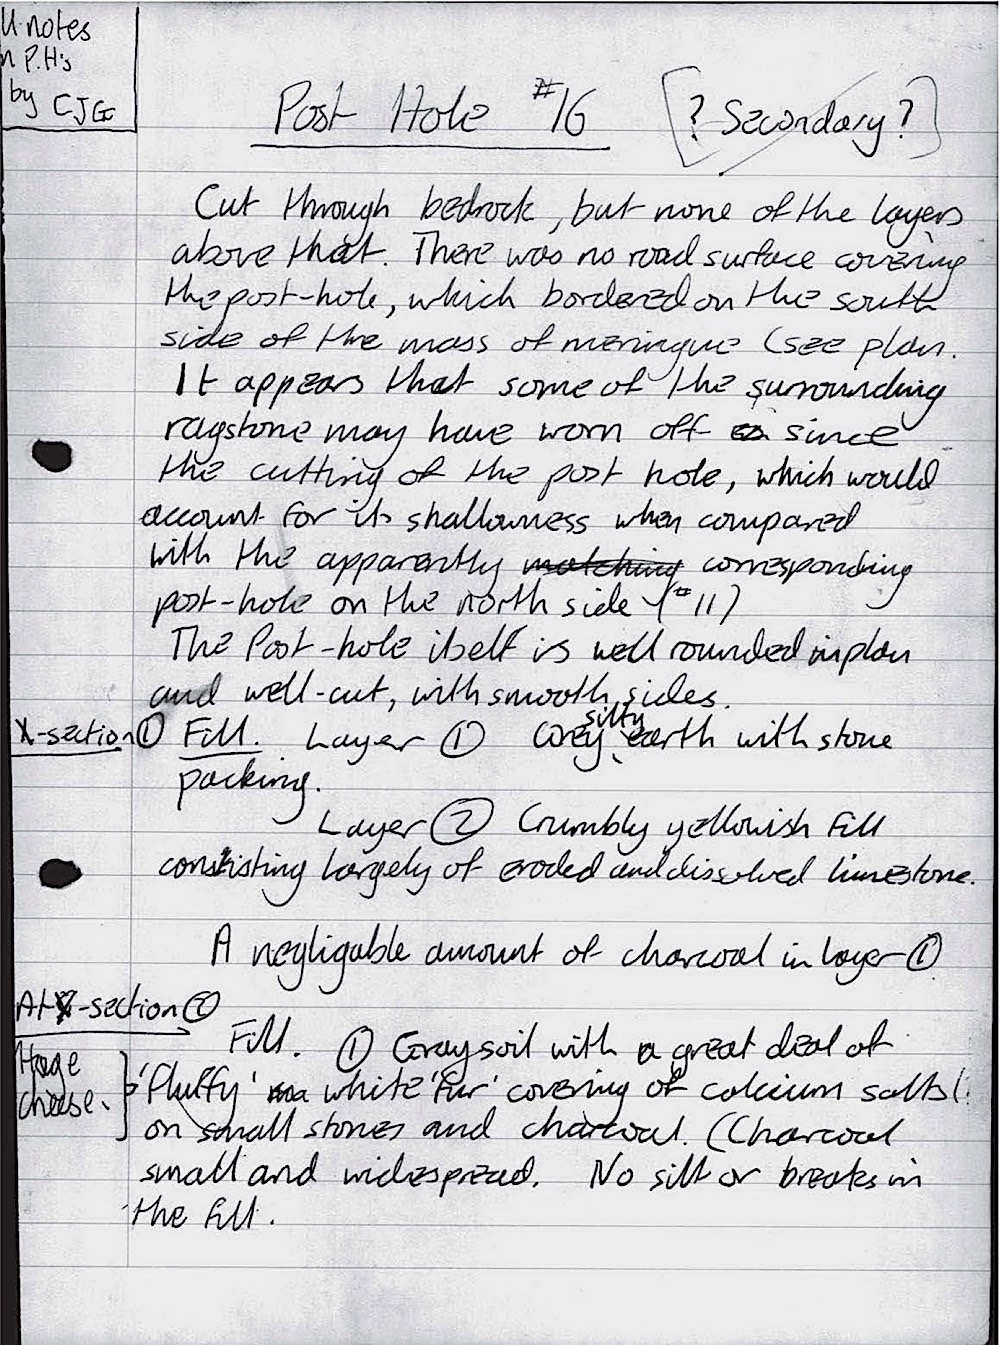 ll notes
n P.H's
by CJG
Post Hole #16 [? Secondary ?]
Cut through bedrock, but none of the layers
above that. There was no road surface covering
the post-hole, which bordered on the south
side of the mass of meringue (see plan.
It appears that some of the surrounding
ragstone may have worn off since
the cutting of the post hole, which would
account for its shallowness when compared
with the apparently matching corresponding
post-hole on the north side (#11)
The Post-hole itself is well rounded in plan
and well-cut, with smooth sides.
X-section ① Fill. Layer ① Grey silty earth with stone
packing.
Layer ② Crumbly yellowish fill
consisting largely of eroded and dissolved limestone.
A negligable amount of charcoal in layer ①
At X-section ②
Fill. ① Gray soil with a great deal of
'fluffy' white 'fur' covering of calcium salts (!
on small stones and charcoal. (Charcoal
small and widespread. No silt or breaks in
the fill.